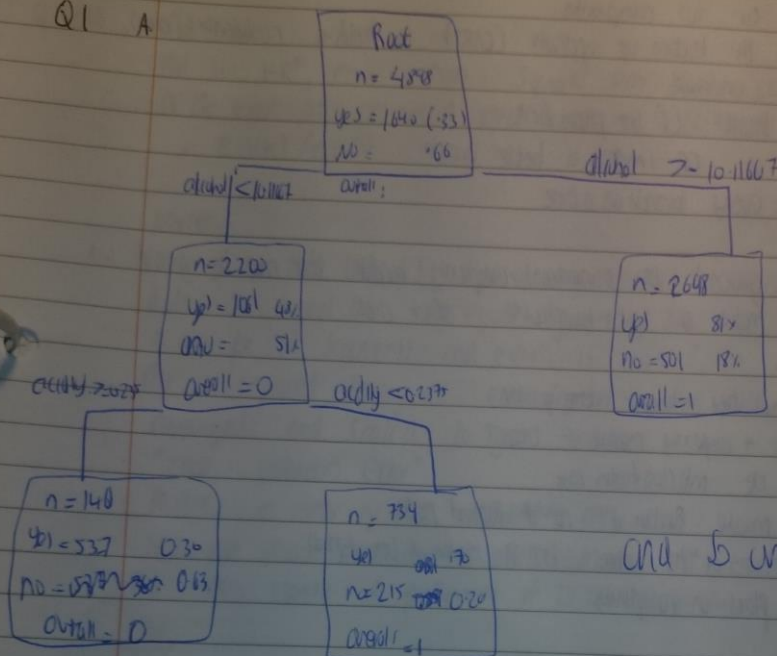 Q1 A.
Root
n = 4898
yes = 1640 (.33)
No = .66
overall :
alcohol < 10.1167
alcohol >= 10.11667
n = 2200
yes = 1061 48%
51%
overall = 0
n = 2698
yes 81%
no = 501 18%
overall = 1
acidity < 0.2375
n = 140
yes = 537 0.30
no = 0.63
overall = 0
n = 734
yes .70
n = 215 0.20
overall = 1
and